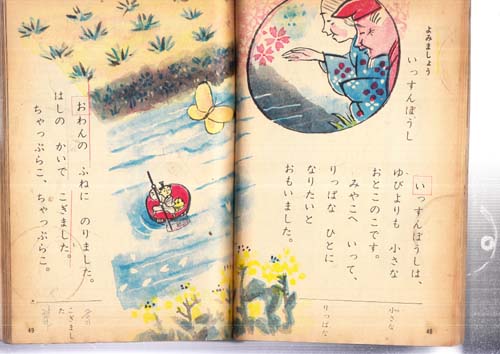 よみましょう
いっすんぼうし
いっすんぼうしは、
ゆびよりも 小さな
おとこのこです。
みやこへ いって、
りっぱな ひとに
なりたいと
おもいました。
小さな
りっぱな
48
おわんの ふねに のりました。
はしの かいで こぎました。
ちゃっぷらこ、ちゃっぷらこ。
こぎまし
た
49